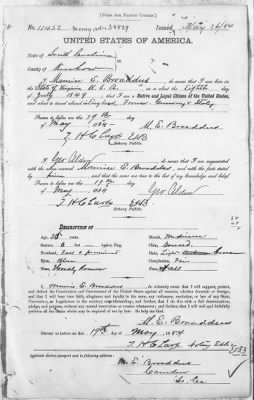 [FORM FOR NATIVE CITIZEN.]
No. 11452
Issued, May 26/84
UNITED STATES OF AMERICA.
State of South Carolina
County of Kershaw
I, Maurice E. Broaddus do swear that I was born in
the State of Virginia U. S. A. on or about the eighth day
of July, 1849; that I am a Native and Loyal Citizen of the United States,
and about to travel abroad
Sworn to before me this 19th day
of May 1884
M. E. Broaddus
Notary Public.
I, Geo Alden do swear that I am acquainted
with the above-named Maurice E. Broaddus, and with the facts stated by
him, and that the same are true to the best of my knowledge and belief.
Sworn to before me this 19th day
of May 1884
Geo Alden
Notary Public.
DESCRIPTION OF
Age, years.
Stature, 6 feet inches, Eng.
Forehead,
Eyes, Blue
Nose,
Mouth, Medium
Chin,
Hair, Light
Complexion, Fair
Face,
I, Maurice E. Broaddus, do solemnly swear that I will support, protect,
and defend the Constitution and Government of the United States against all enemies, whether domestic or foreign;
and that I will bear true faith, allegiance, and loyalty to the same, any ordinance, resolution, or law of any State,
Convention, or Legislature to the contrary notwithstanding; and further, that I do this with a full determination,
pledge, and purpose, without any mental reservation or evasion whatsoever; and further, that I will well and faithfully
perform all the duties which may be required of me by law. So help me God.
M. E. Broaddus
Sworn to before me this 19th day of May 1884
Applicant desires passport sent to following address:
M. E. Broaddus
Camden
So. Ca